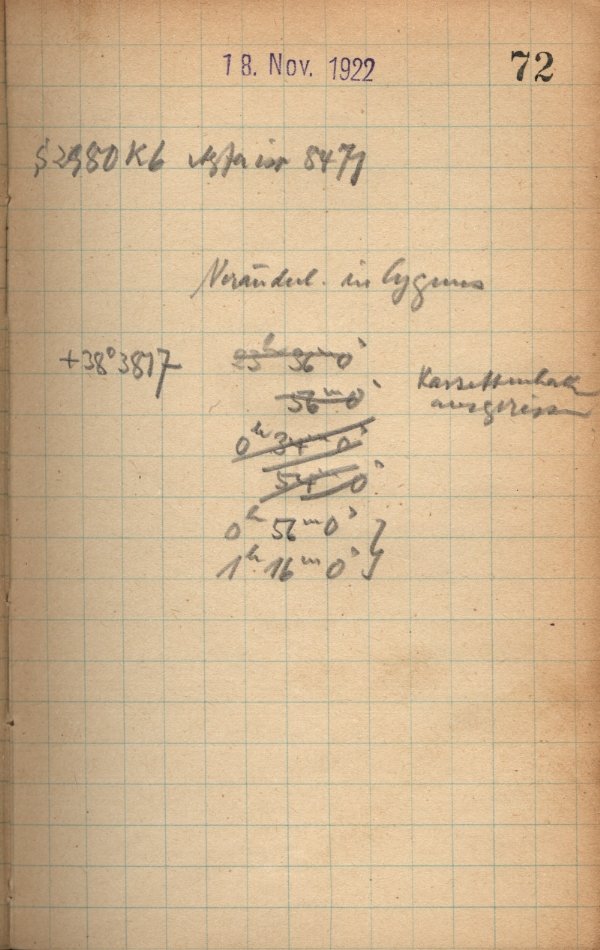 18. Nov. 1922 72
S 2980 Kb Agfa iso 8471
Veränderl. in Cygnus
+38° 3817 23ʰ 36ᵐ 0ˢ
56ᵐ 0ˢ Kassettenhake
ausgerissen
0ʰ 34ᵐ 0ˢ
54ᵐ 0ˢ
0ʰ 56ᵐ 0ˢ }
1ʰ 16ᵐ 0ˢ